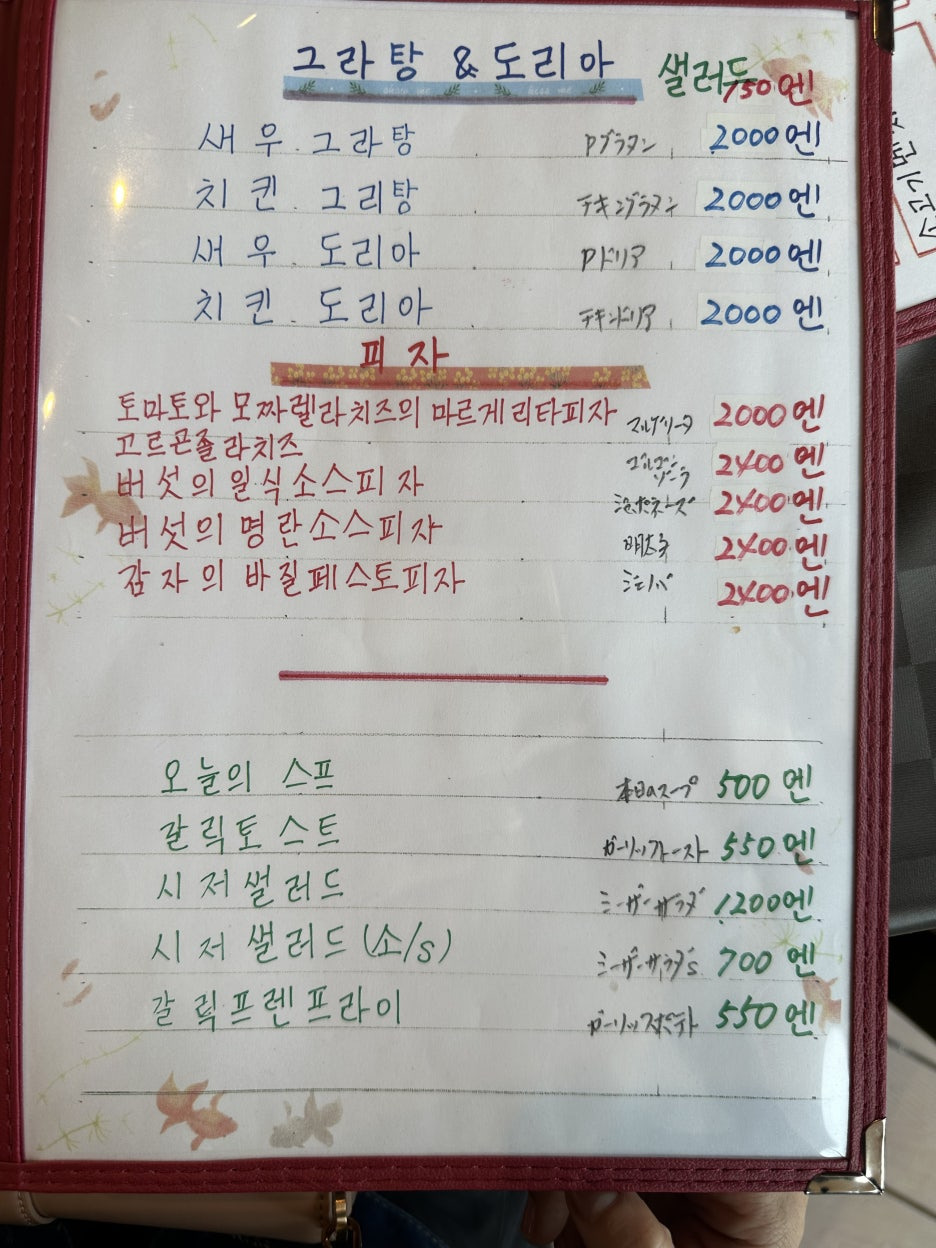 그라탕 & 도리아 샐러드 750엔
새우.그라탕 Pグラタン 2000엔
치킨.그리탕 チキングラタン 2000엔
새우.도리아 Pドリア 2000엔
치킨.도리아 チキンドリア 2000엔
피자
토마토와 모짜렐라치즈의 마르게리타피자 マルゲリータ 2000엔
고르곤졸라치즈 ゴルゴンゾーラ 2400엔
버섯의 일식소스피자 2400엔
버섯의 명란소스피자 明太子 2400엔
감자의 바질페스토피자 ジェノバ 2400엔
오늘의 스프 本日のスープ 500엔
갈릭토스트 ガーリックトースト 550엔
시저샐러드 シーザーサラダ 1200엔
시저샐러드(소/s) シーザーサラダs 700엔
갈릭프렌프라이 ガーリックポテト 550엔